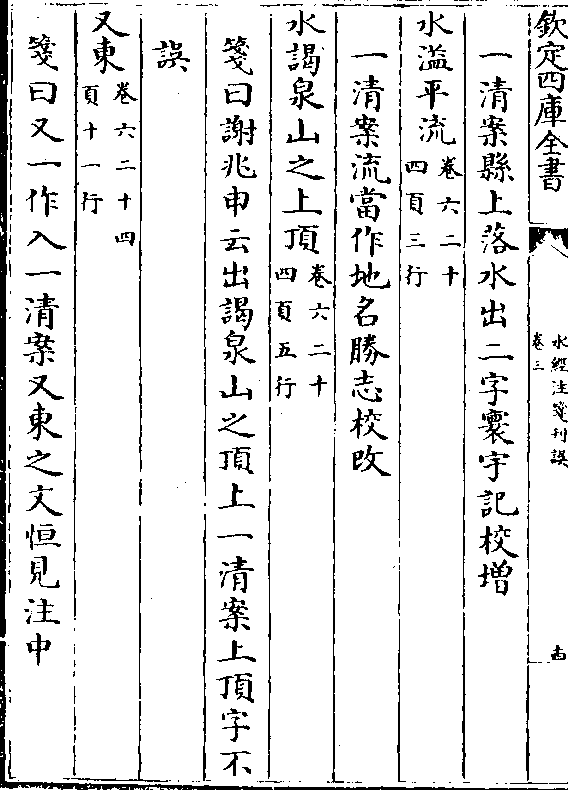 欽定四庫全書
水經注箋刊誤
卷三
十四
一清案縣上落水出二字寰宇記校增
水溢平流卷六二十四頁三行
一清案流當作地名勝志校改
水謁泉山之上頂卷六二十四頁五行
箋曰謝兆申云出謁泉山之頂上一清案上頂字不
誤
又東卷六二十四頁十一行
箋曰又一作入一清案又東之文恒見注中